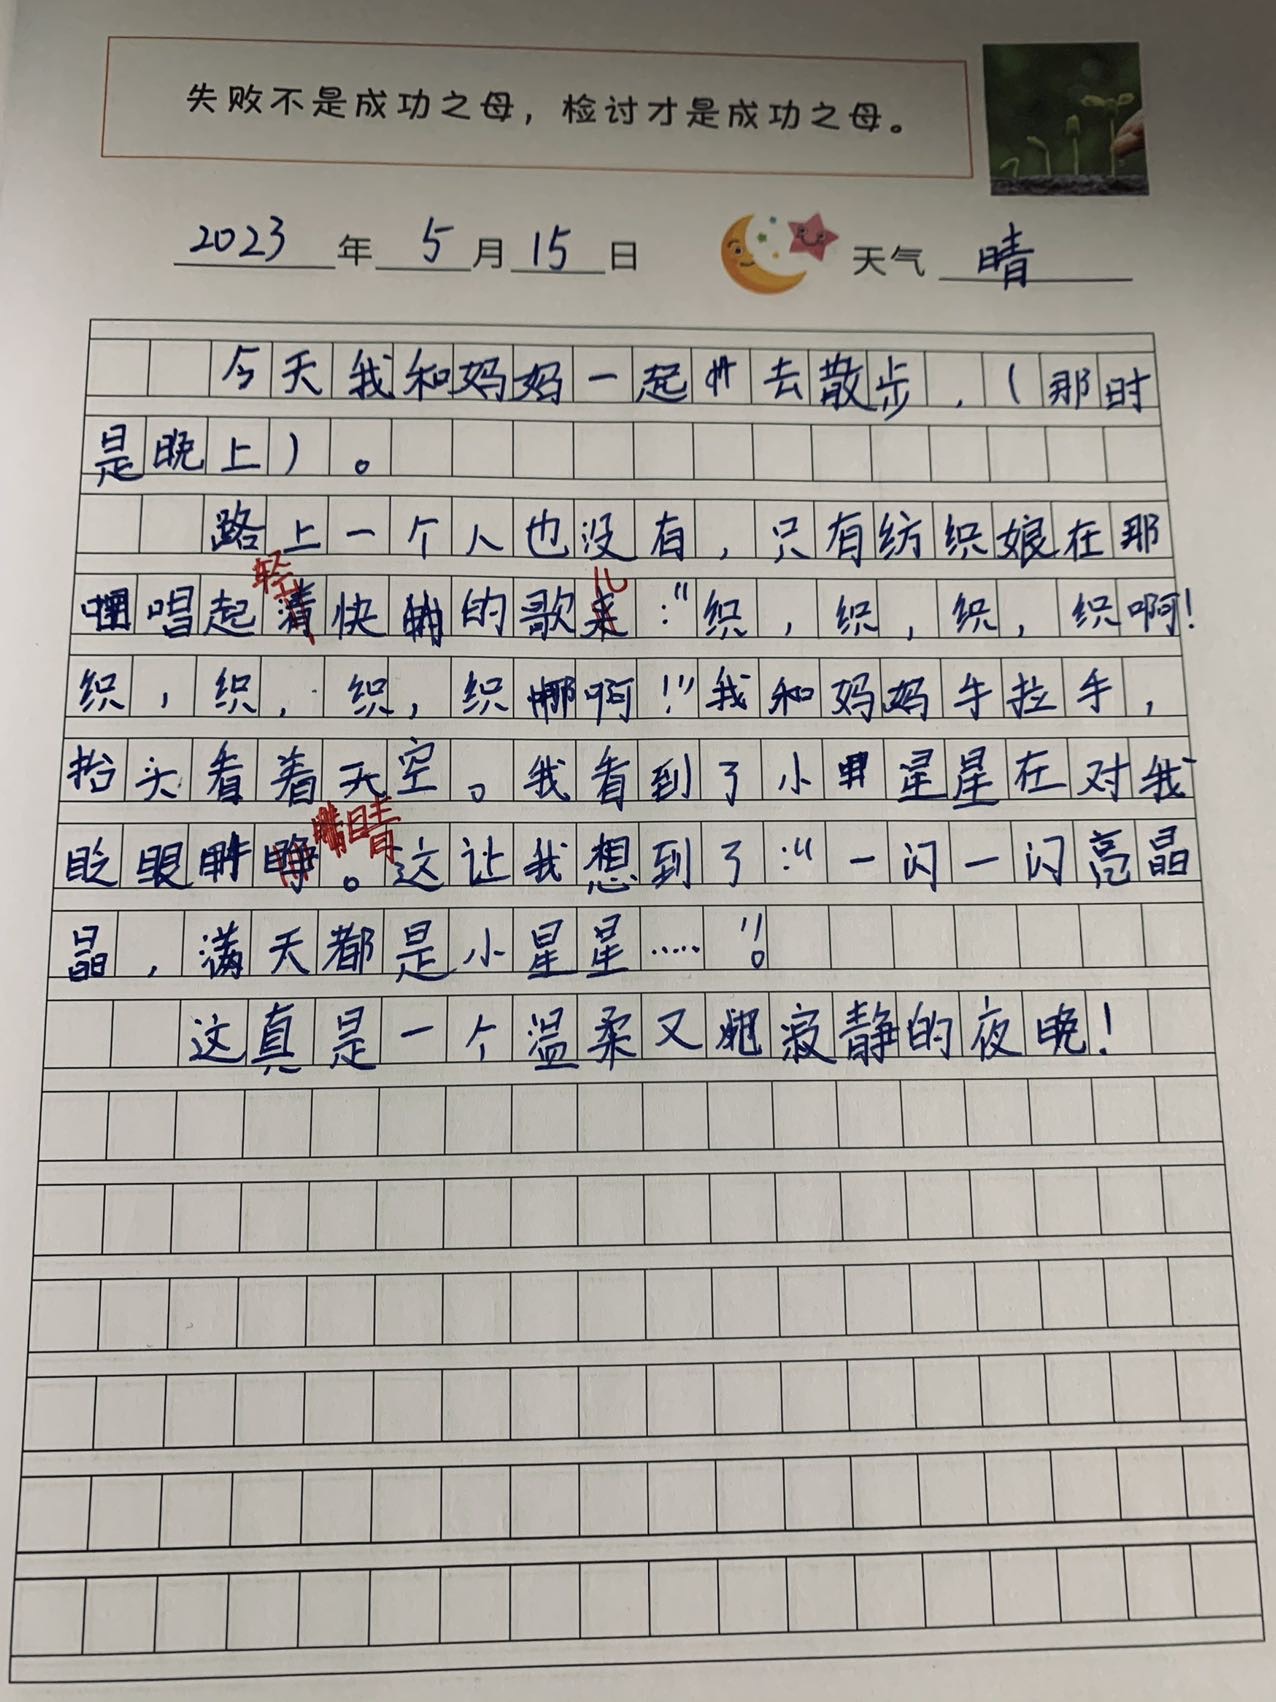 失败不是成功之母，检讨才是成功之母。
2023年5月15日 天气 晴
今天我和妈妈一起去散步，（那时
是晚上）。
路上一个人也没有，只有纺织娘在那
轻 儿
唱起清快的歌来：“织，织，织，织啊！
织，织，织，织啊！”我和妈妈手拉手，
抬头看着天空。我看到了小星星在对我
睛
眨眼睁。这让我想到了：“一闪一闪亮晶
晶，满天都是小星星……”。
这真是一个温柔又寂静的夜晚！